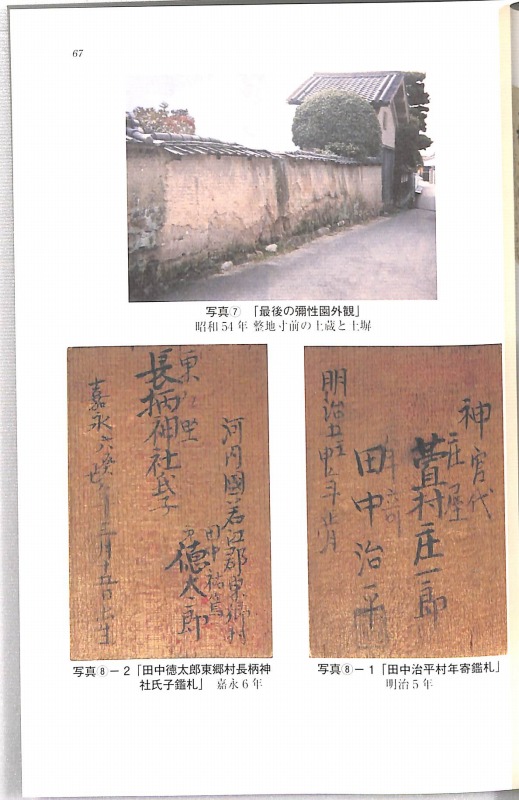 67
写真⑦ 「最後の彌性園外観」
昭和54年 整地寸前の土蔵と土塀
神官代
萱村庄一郎
田中治平
明治五壬申年正月
河内國若江郡東郷村
田中
徳太郎
長柄神社氏子
嘉永六癸丑年二月十五日出生
写真⑧－2「田中徳太郎東郷村長柄神
社氏子鑑札」 嘉永6年
写真⑧－1「田中治平村年寄鑑札」
明治5年